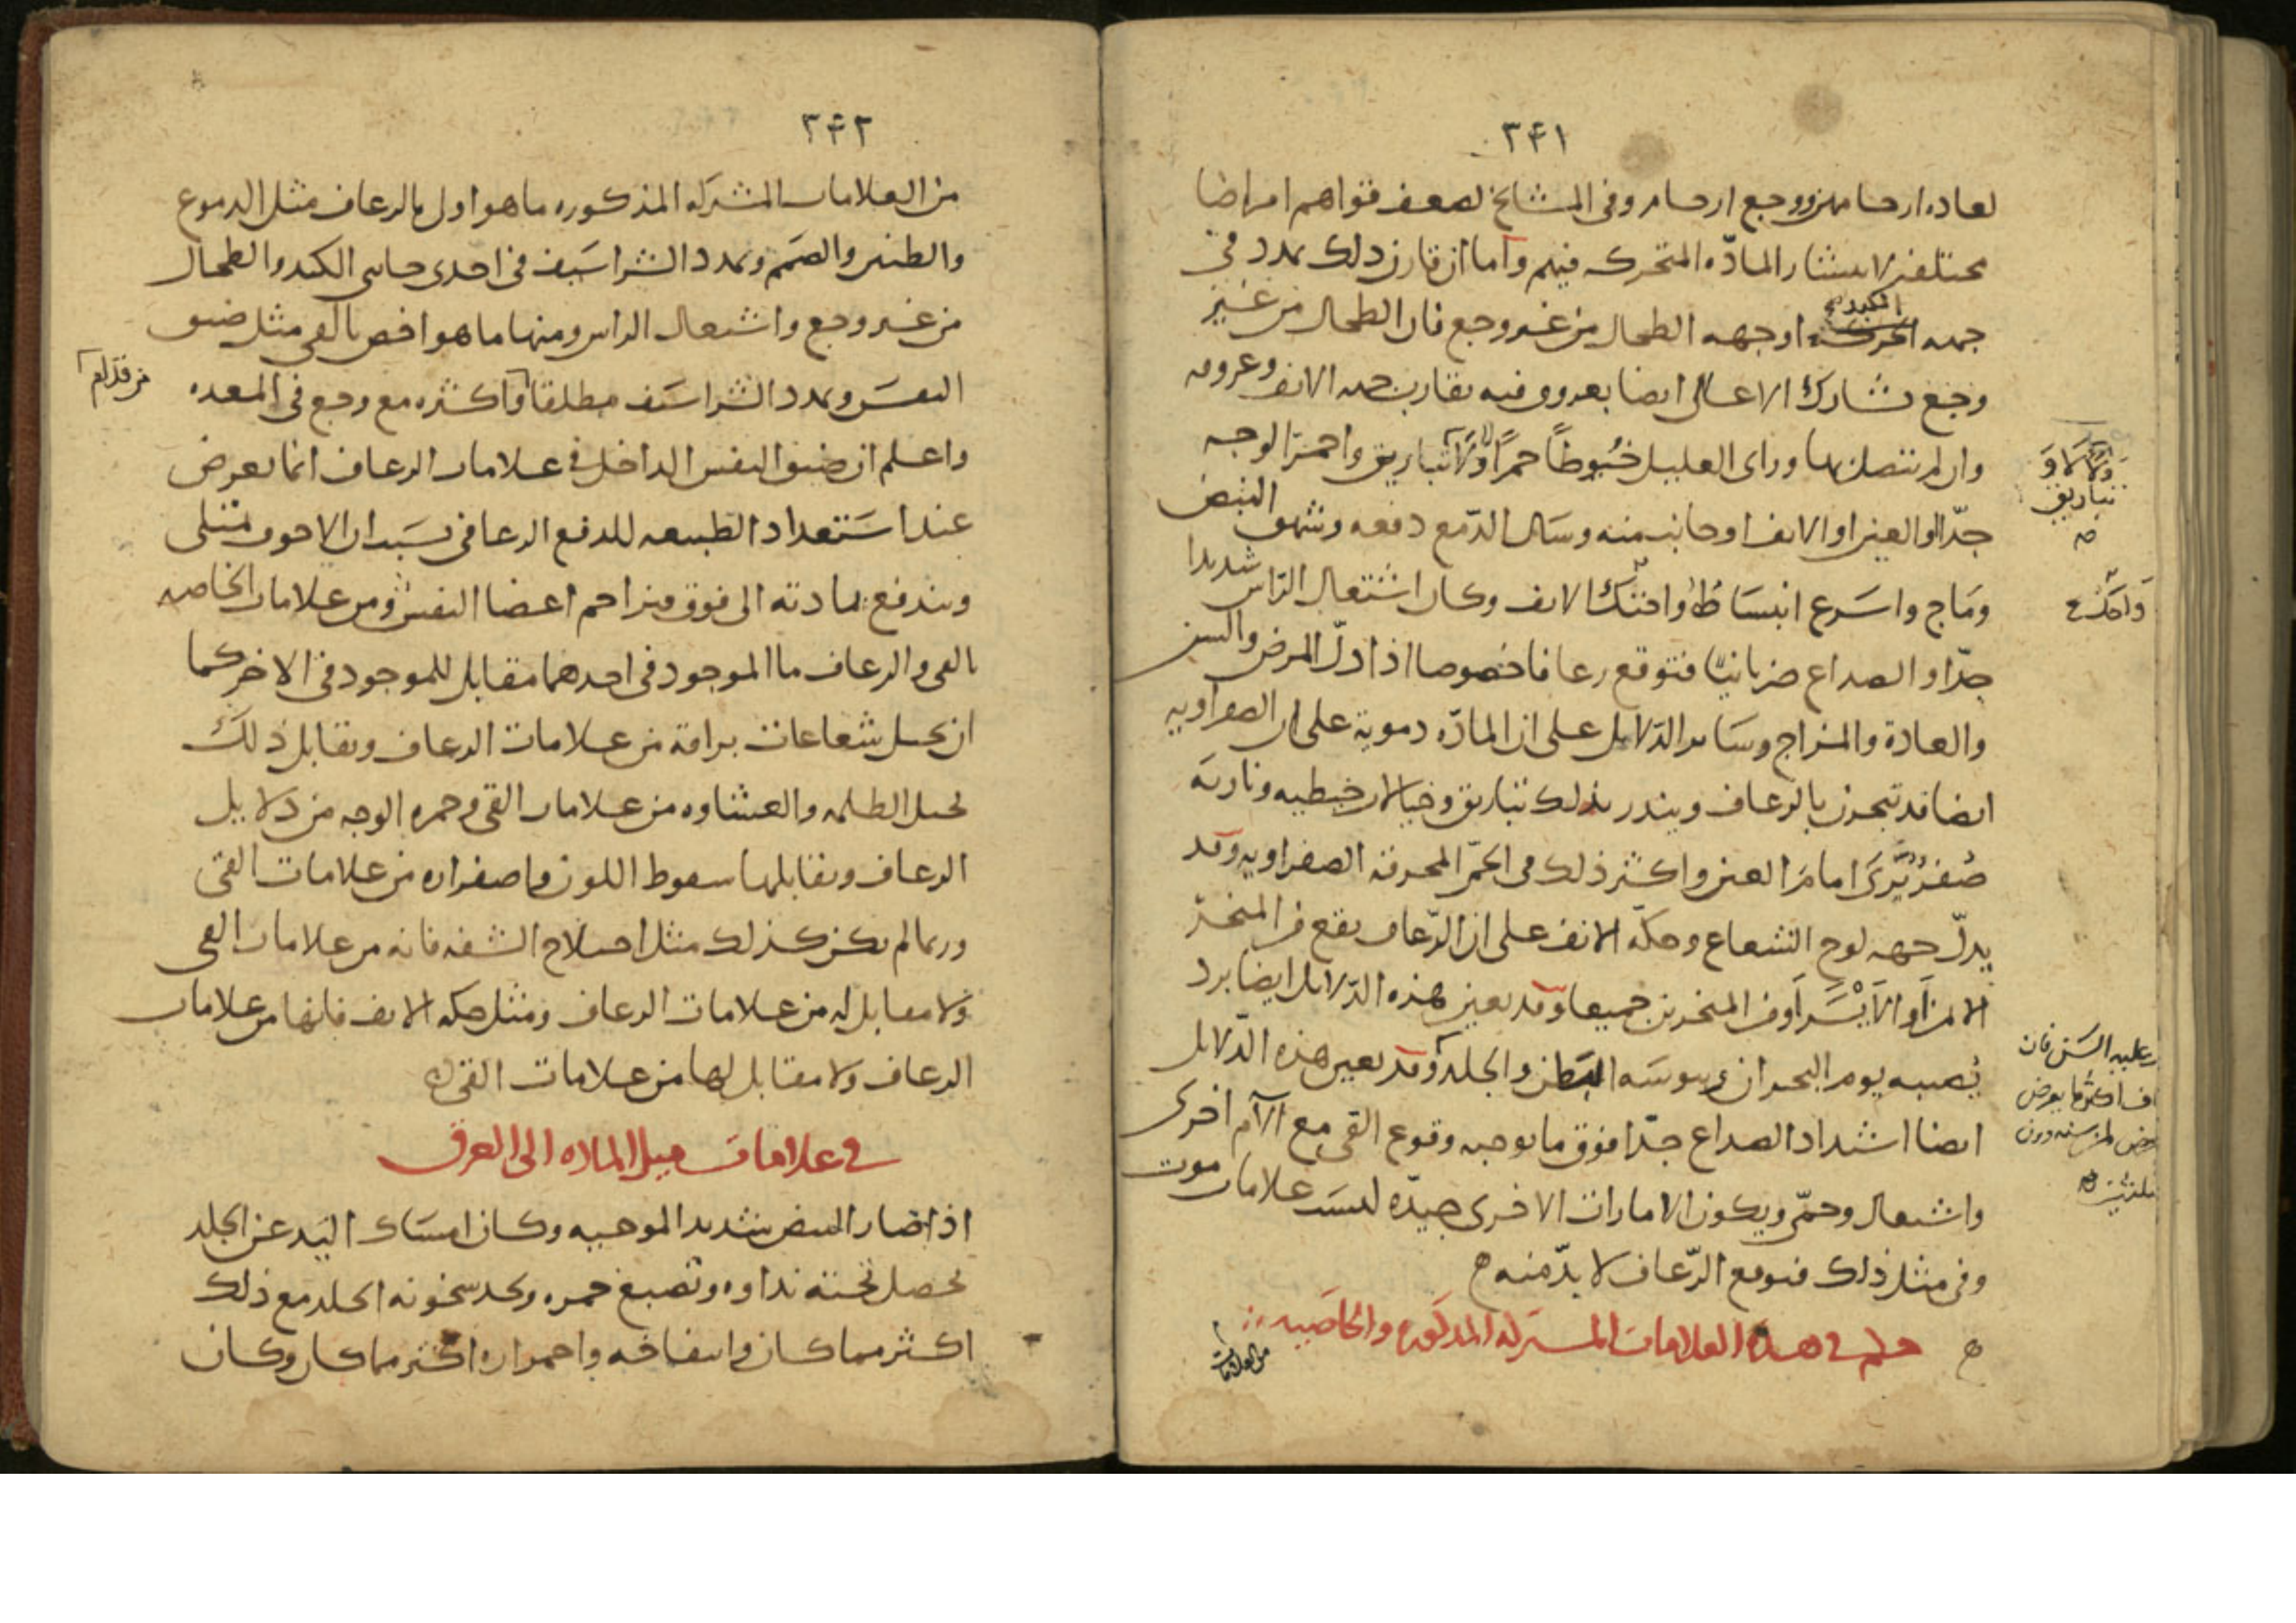 ٣٤١
لعاده ارحامهن ووجع ارحام وفى المشايخ لضعف قواهم امراضا
مختلفه لانتشار المادّه المتحركه فيهم واما ان قارن ذلك تمدد فى
جهه الكبد او جهه الطحال من غير وجع فان الطحال من غير
وجع تشارك الاعالى ايضا بعروق فيه تقارب جهه الانف وعروقه
وان لم تتصل بها وراى العليل خيوطاً حمرًا ولالا تباريق واحمرّ الوجه
جدّا او العين او الانف او جانب منه وسال الدّمع دفعه وشهق النبض
وماج واسرع انبساطا واحتك الانف وكان اشتعال الرّاس شديدا
جدّا والصداع ضربانيا فتوقع رعافا خصوصا اذا دلّ المرض والسن
والعادة والمزاج وساير الدّلايل على ان المادّه دموية على ان الصفراويه
ايضا قد تبحرن بالرعاف وينذر بذلك تباريق وخيالات خيطيه وناريه
صُفر تُرى امام العين واكثر ذلك فى الحمّى المحرقه الصفراويه وقد
يدلّ جهه لوح الشعاع وحكّه الانف على ان الرّعاف يقع فى المنخر
الايمن او الايسر او فى المنخرين جميعا وقد يعين هذه الدّلايل ايضا برد
يُصيبه يوم البحران ويبوسه البطن والجلد وقد يعين هذه الدّلايل
ايضا اشتداد الصداع جدّا فوق ما يوجبه وقوع القى مع الآم اخرى
واشتعال وحمّى ويكون الامارات الاخرى جيدّه ليست علامات موت
وفى مثل ذلك فتوقع الرّعاف لا بدّ منه
فى هذه العلامات المشتركه المذكوره والخاصيه
من العلامات
تباريق
واحتك
٣٤٢
من العلامات المشتركه المذكوره ما هو اول بالرعاف مثل الدموع
والطنين والصمم وتمدد الشراسيف فى احدى جانبى الكبد والطحال
من غير وجع واشتعال الراس ومنها ما هو اخص بالقى مثل ضيق
النفس وتمدد الشراسيف مطلقا واكثره مع وجع فى المعده
من قدّام
واعلم ان ضيق النفس الداخل فى علامات الرعاف انما يعرض
عند استعداد الطبيعه للدفع الرعافى بسبب ان الاجوف تمتلى
ويندفع بمادته الى فوق فيزاحم اعضا النفس ومن علامات الخاصه
بالقى والرعاف ما الموجود فى احدهما مقابل للموجود فى الاخر كما
ان تخيل شعاعات براقة من علامات الرعاف وتقابل ذلك
تخيل الظلمه والغشاوه من علامات القى وحمره الوجه من دلايل
الرعاف وتقابلها سقوط اللون واصفراره من علامات القى
وربما لم يكن كذلك مثل اختلاج الشفه فانه من علامات القى
ولا مقابل له من علامات الرعاف ومثل حكه الانف فانها من علامات
الرعاف ولا مقابل لها من علامات القى
فى علامات ميل الماده الى العرق
اذا صار النبض شديد الموجيه وكان امساك اليد عن الجلد
تحصل تحته نداوه وتصبغ حمره وتجد سخونه الجلد مع ذلك
اكثر مما كان وانتفاخه واحمراره اكثر مما كان وكان